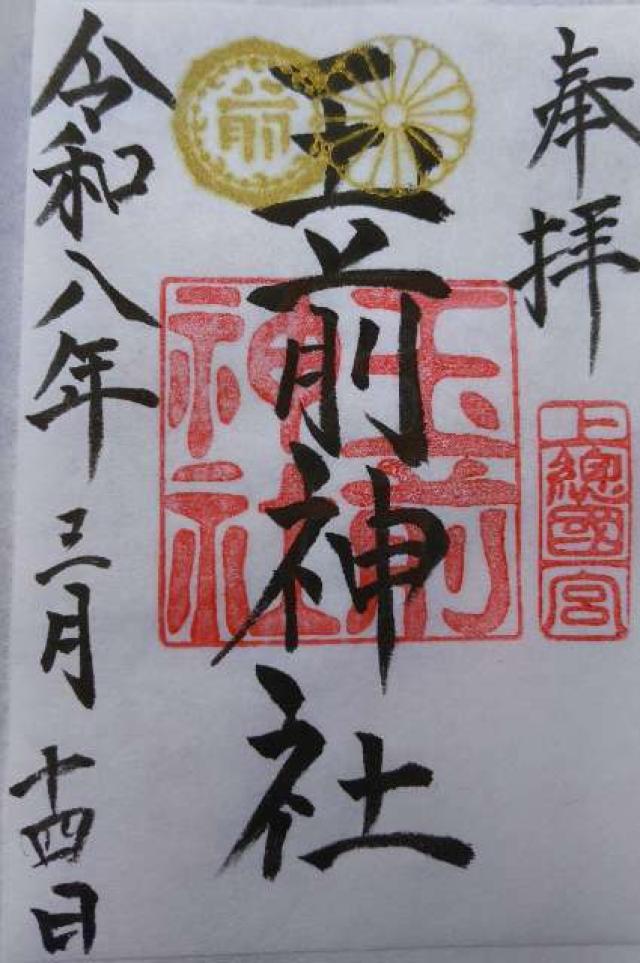 奉拝
上總國一宮
玉前神社
玉前
神社
前
令和八年三月十四日